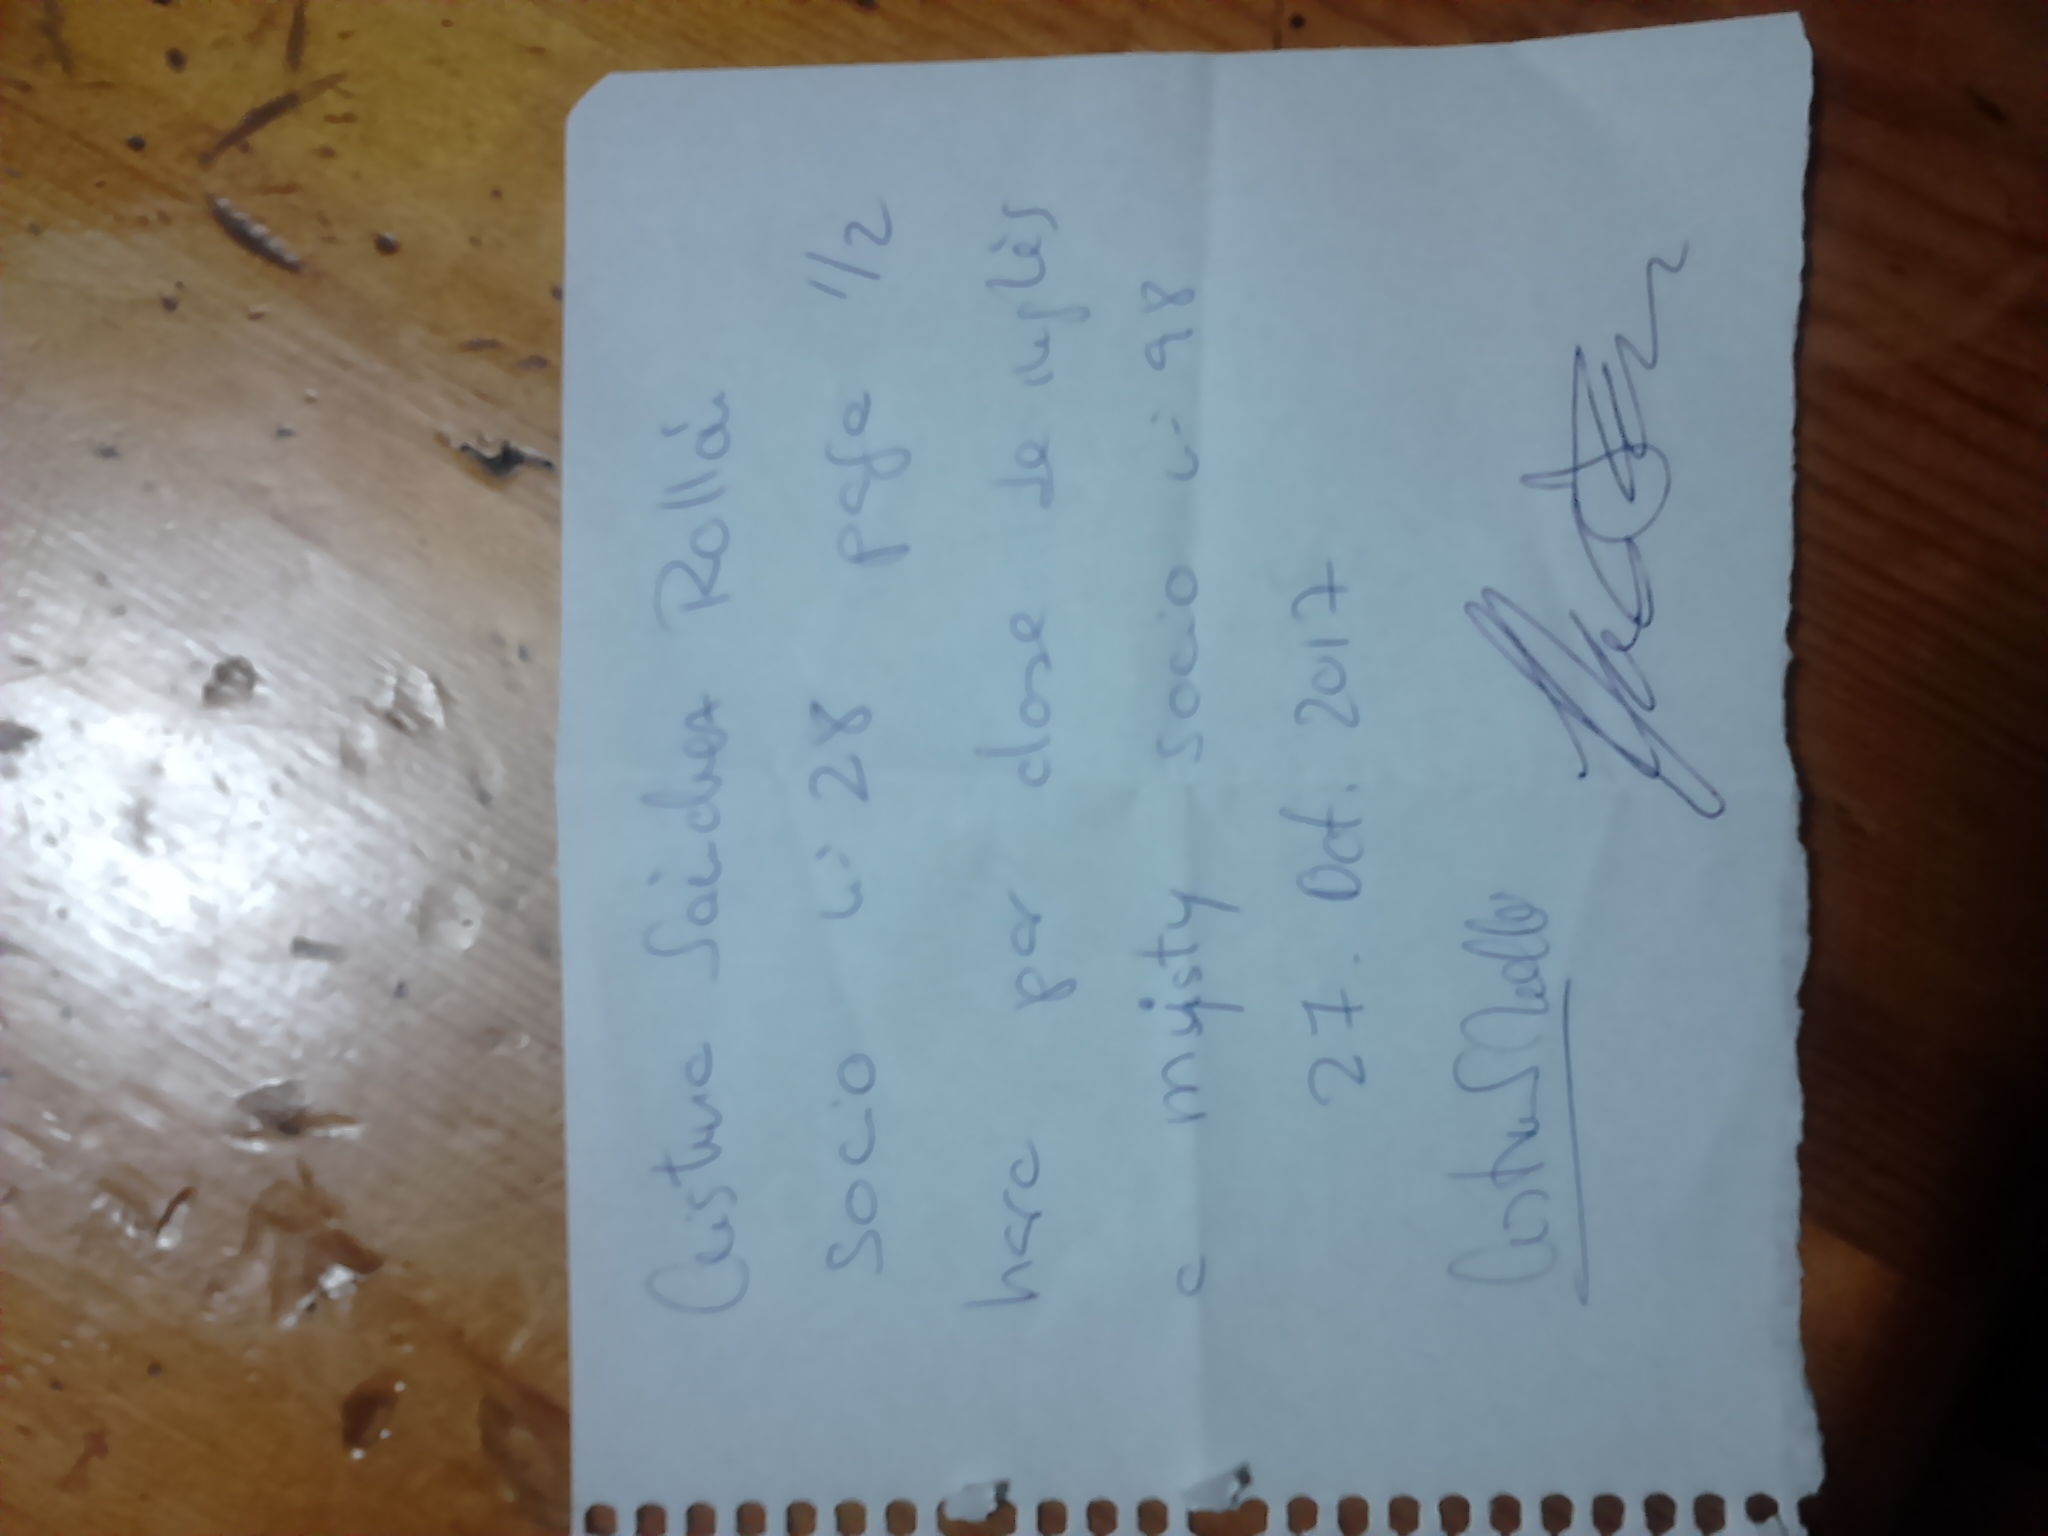 Cristina Sánchez Rollán
socio nº 28 paga 1/2
hora por clase de inglés
a myisty socio nº 98
27. Oct. 2017